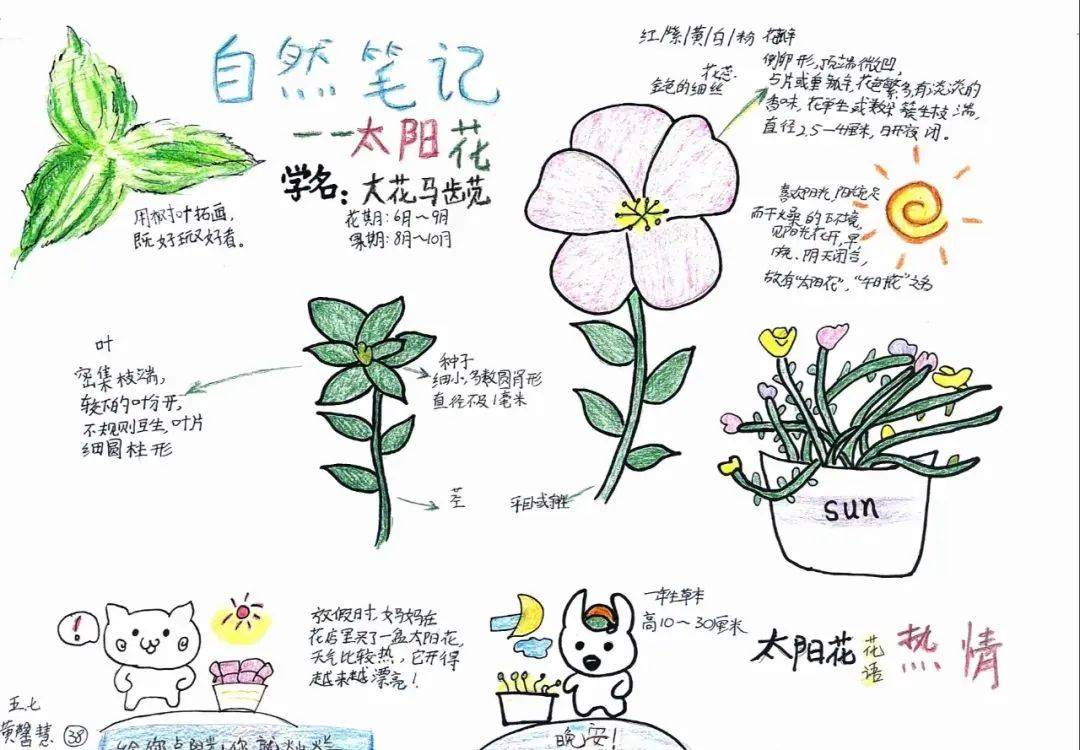 自然笔记
——太阳花
学名：大花马齿苋
花期：6月～9月
果期：8月～10月
用树叶拓画，
既好玩又好看。
红/紫/黄/白/粉 花瓣
倒卵形，顶端微凹，
香味，花单生或数朵簇生枝端，
直径2.5—4厘米，日开夜闭。
花蕊
金色的细丝
喜欢阳光，阳光充足
而干燥的环境，
见阳光花开，早、
晚、阴天闭合，
故有“太阳花”，“午时花”之名
叶
密集枝端，
较下的叶分开，
不规则互生，叶片
细圆柱形
种子
细小，多数圆肾形
直径不及1毫米
茎
平卧或斜
sun
放假时，妈妈在
花店里买了一盆太阳花，
天气比较热，它开得
越来越漂亮！
一年生草本
高10～30厘米
太阳花 花语 热情
五、七
黄馨慧 38
给你点阳光，你就灿烂
晚安！